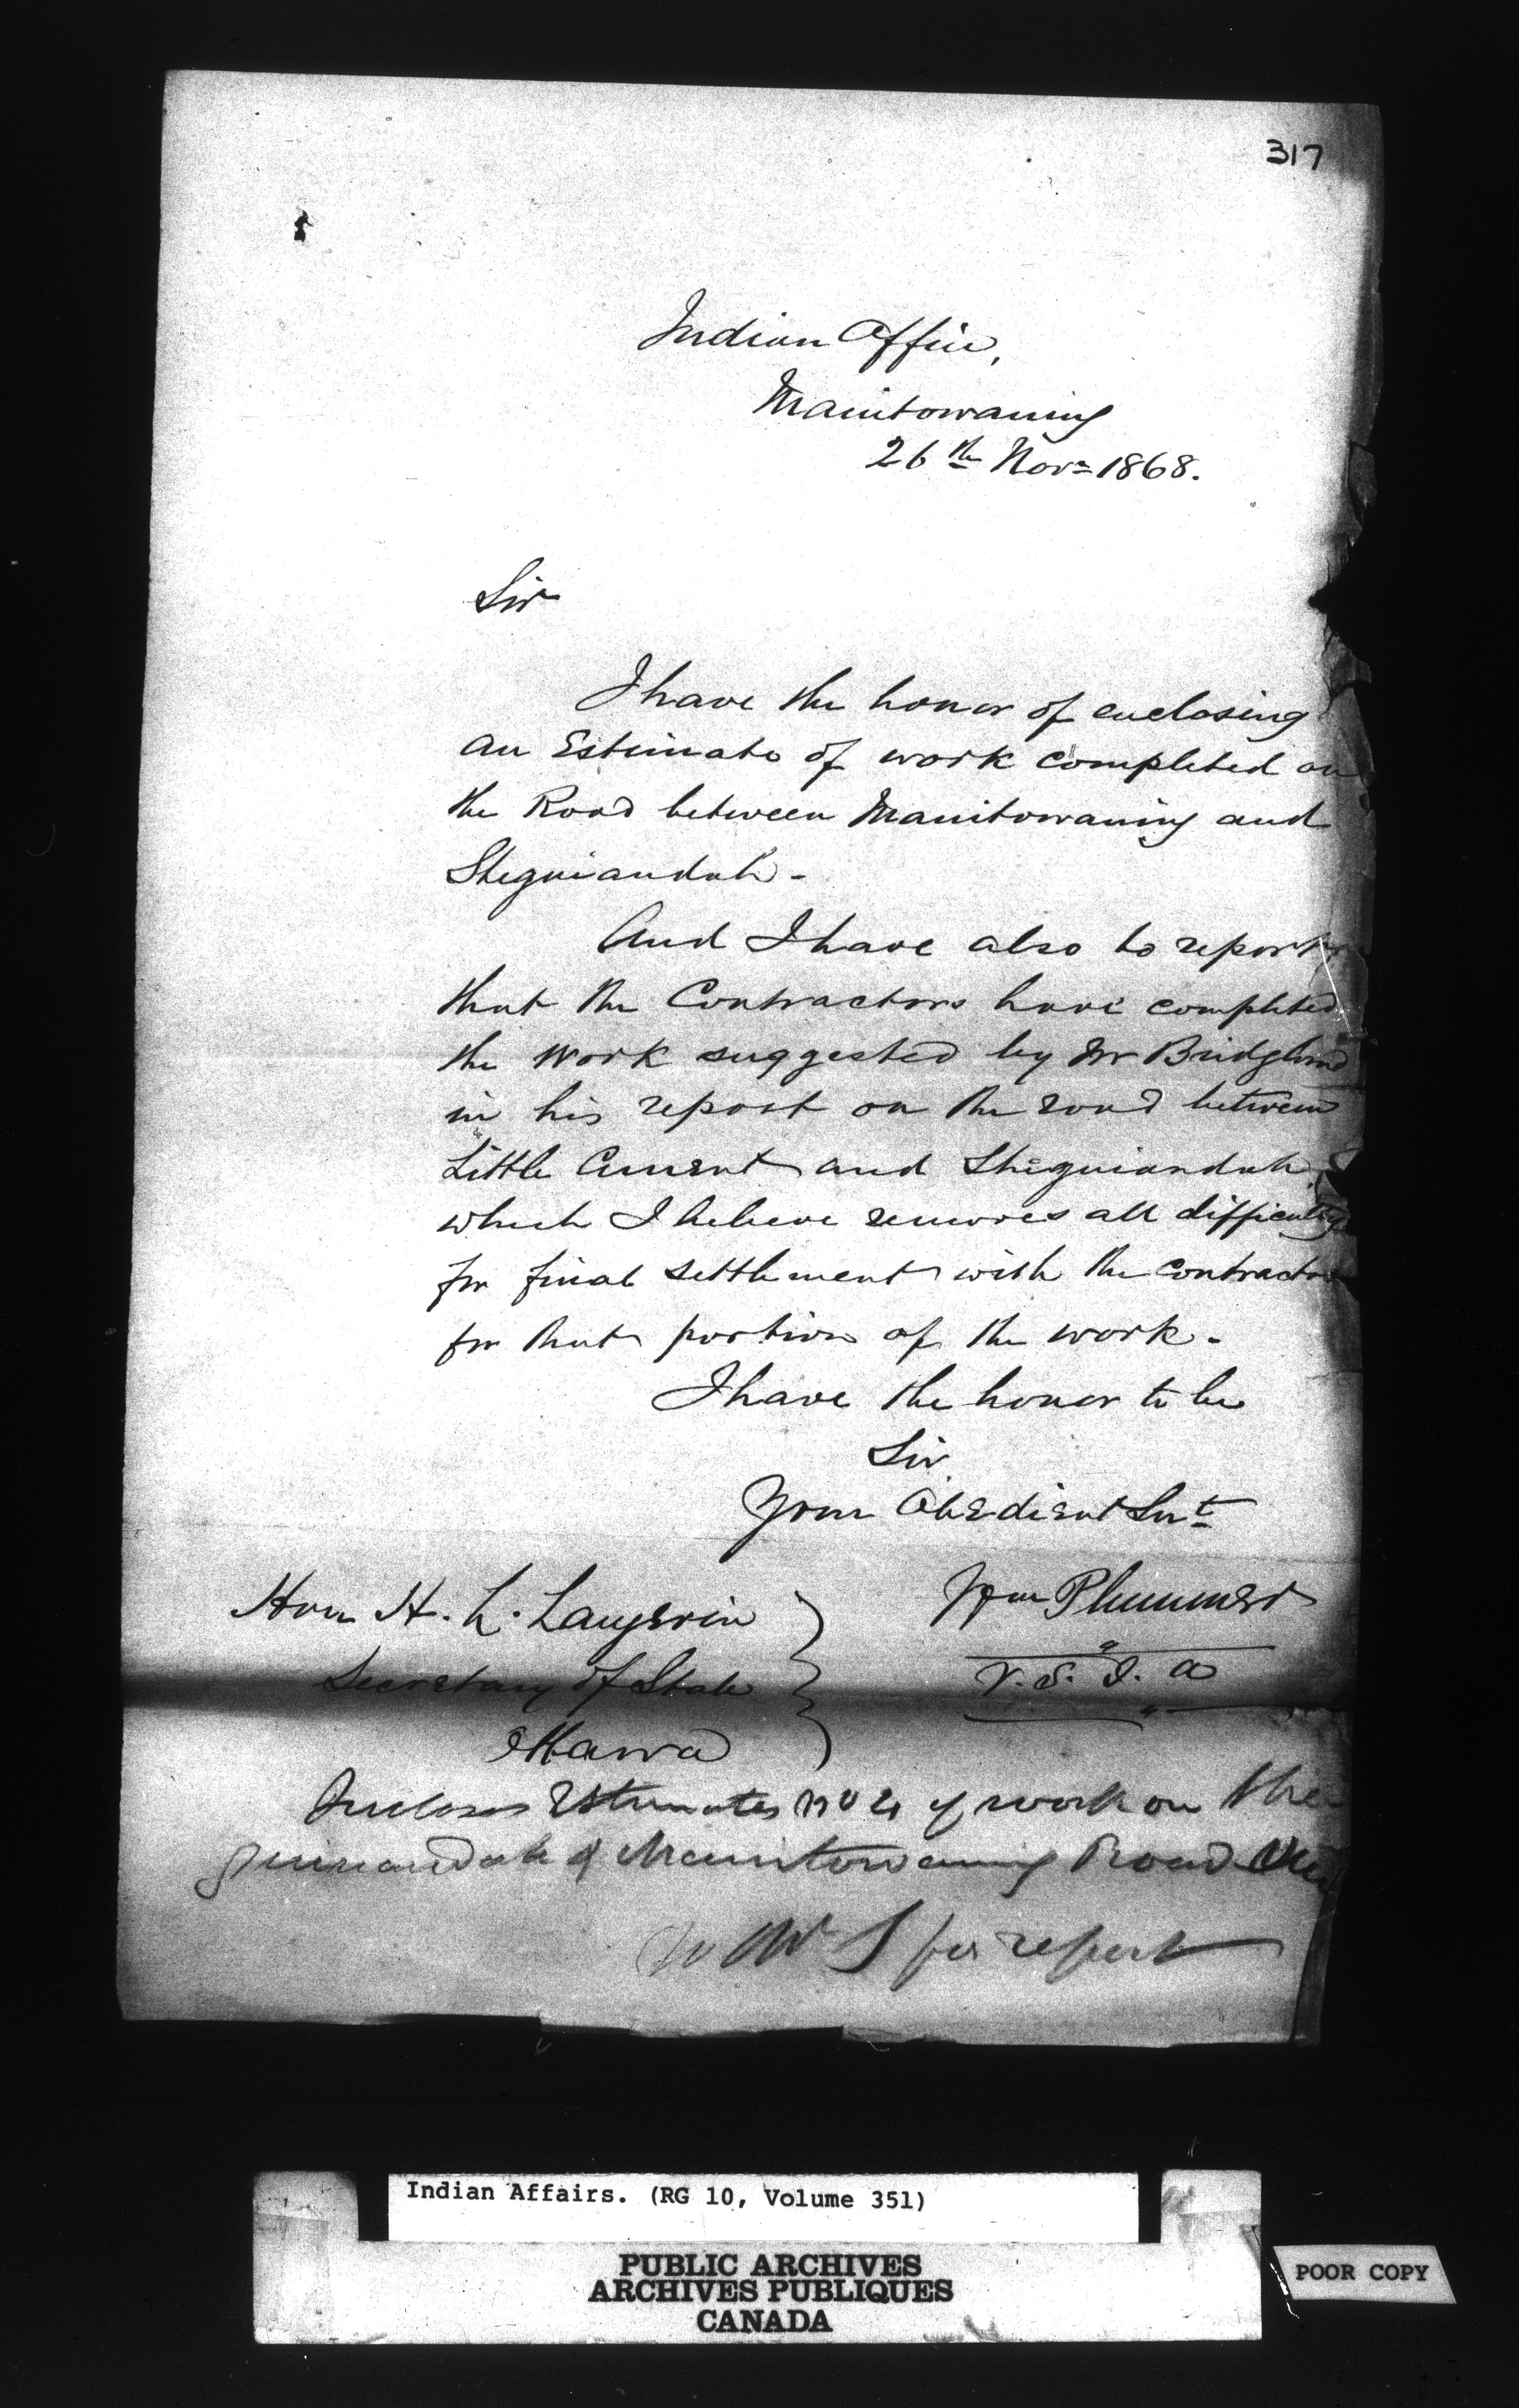 317
Indian Office,
Manitowaning
26th Novr 1868.
Sir
I have the honor of enclosing
an Estimate of work completed on
the Road between Manitowaning and
Sheguiandah -
And I have also to report
that the Contractors have completed
the work suggested by Mr Bridgland
in his report on the road between
Little Current and Sheguiandah
which I believe removes all difficulty
for final settlement with the contractors
for that portion of the work -
I have the honor to be
Sir
Your Obedient Svt
Wm Plummer
V. S. I. A
Hon H. L. Langevin
Secretary of State
Ottawa
Incloses Estimates No 4 of work on She
guiandah & Manitowaning Road
to Mr S for report
Indian Affairs. (RG 10, Volume 351)
PUBLIC ARCHIVES
ARCHIVES PUBLIQUES
CANADA
POOR COPY